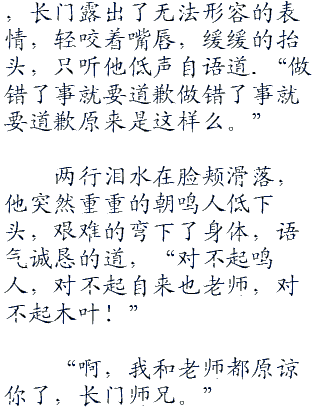 ，长门露出了无法形容的表
情，轻咬着嘴唇，缓缓的抬
头，只听他低声自语道．“做
错了事就要道歉做错了事就
要道歉原来是这样么。”
两行泪水在脸颊滑落，
他突然重重的朝鸣人低下
头，艰难的弯下了身体，语
气诚恳的道，“对不起鸣
人，对不起自来也老师，对
不起木叶！”
“啊，我和老师都原谅
你了，长门师兄。”